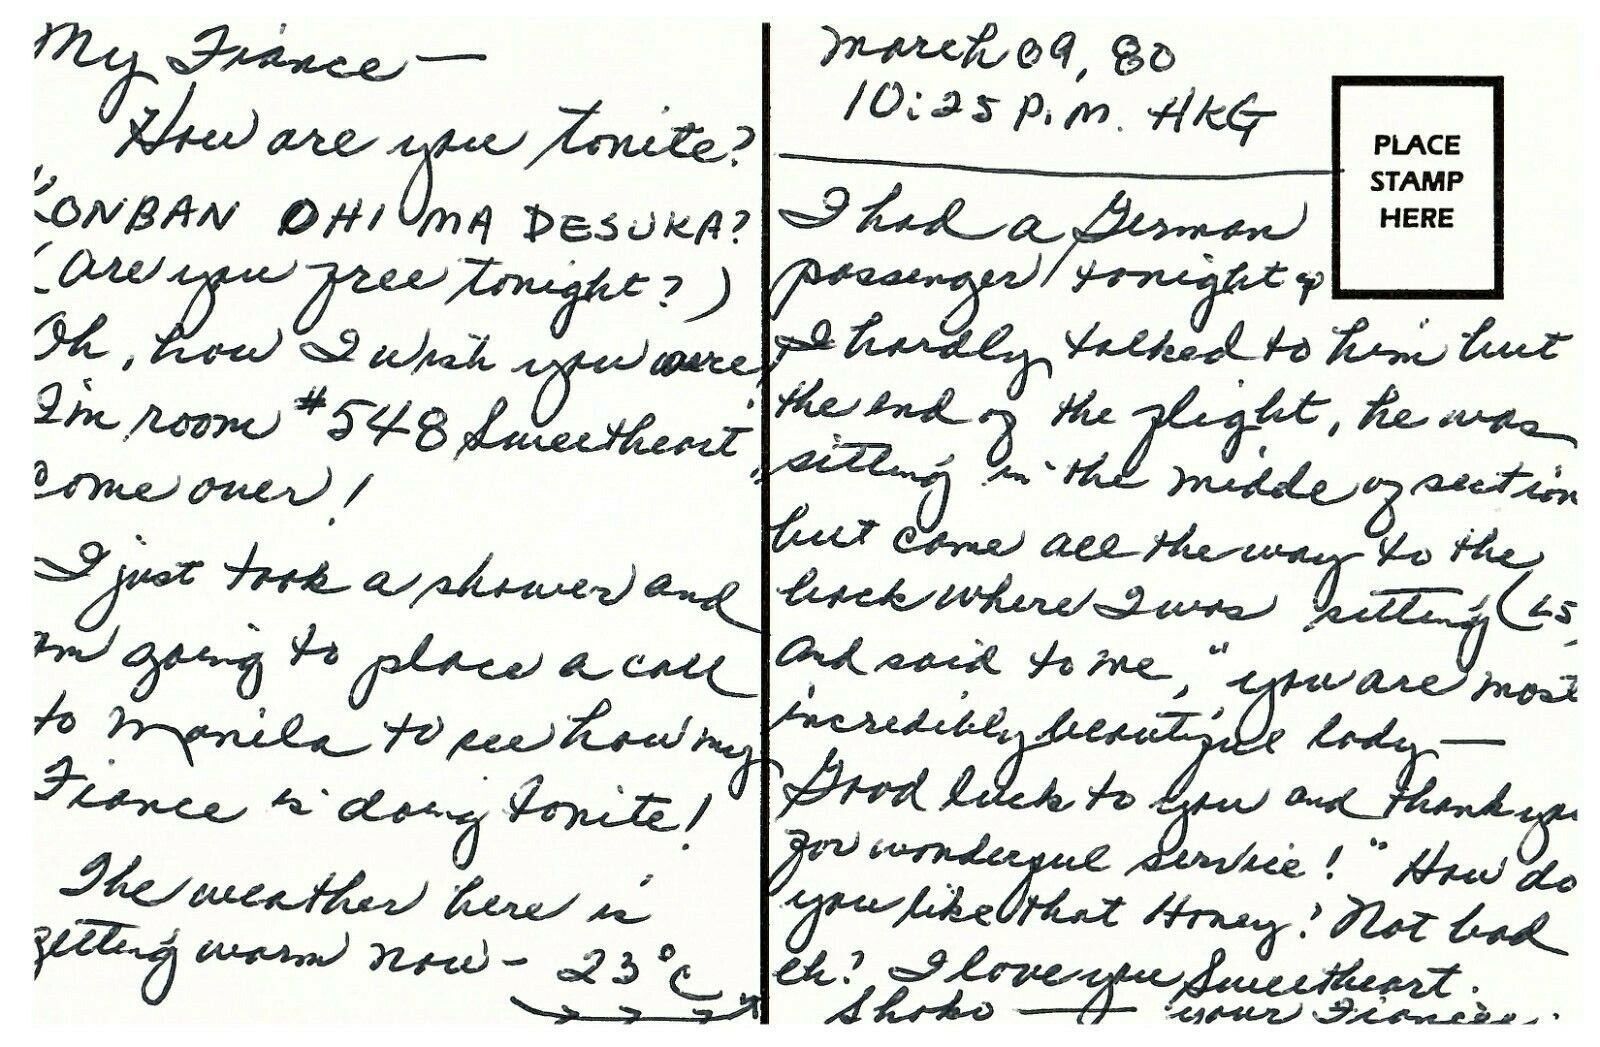 My Fiance —
How are you tonite?
KONBAN OHIMA DESUKA?
(Are you free tonight?)
Oh, how I wish you were
I'm room #548 Sweetheart,
come over!
I just took a shower and
am going to place a call
to Manila to see how my
Fiance is doing tonite!
The weather here is
getting warm now - 23°C
March 09, 80
10:25 P.M. HKG
PLACE
STAMP
HERE
I had a German
passenger tonight
I hardly talked to him but
the end of the flight, he was
sitting in the midde of section
but come all the way to the
back where I was sitting (L5,
and said to me, "you are most
incredibly beautiful lady —
Good luck to you and thank you
for wonderful service!" How do
you like that Honey? Not bad
eh? I love you Sweetheart.
Shoko — your Fiancee.